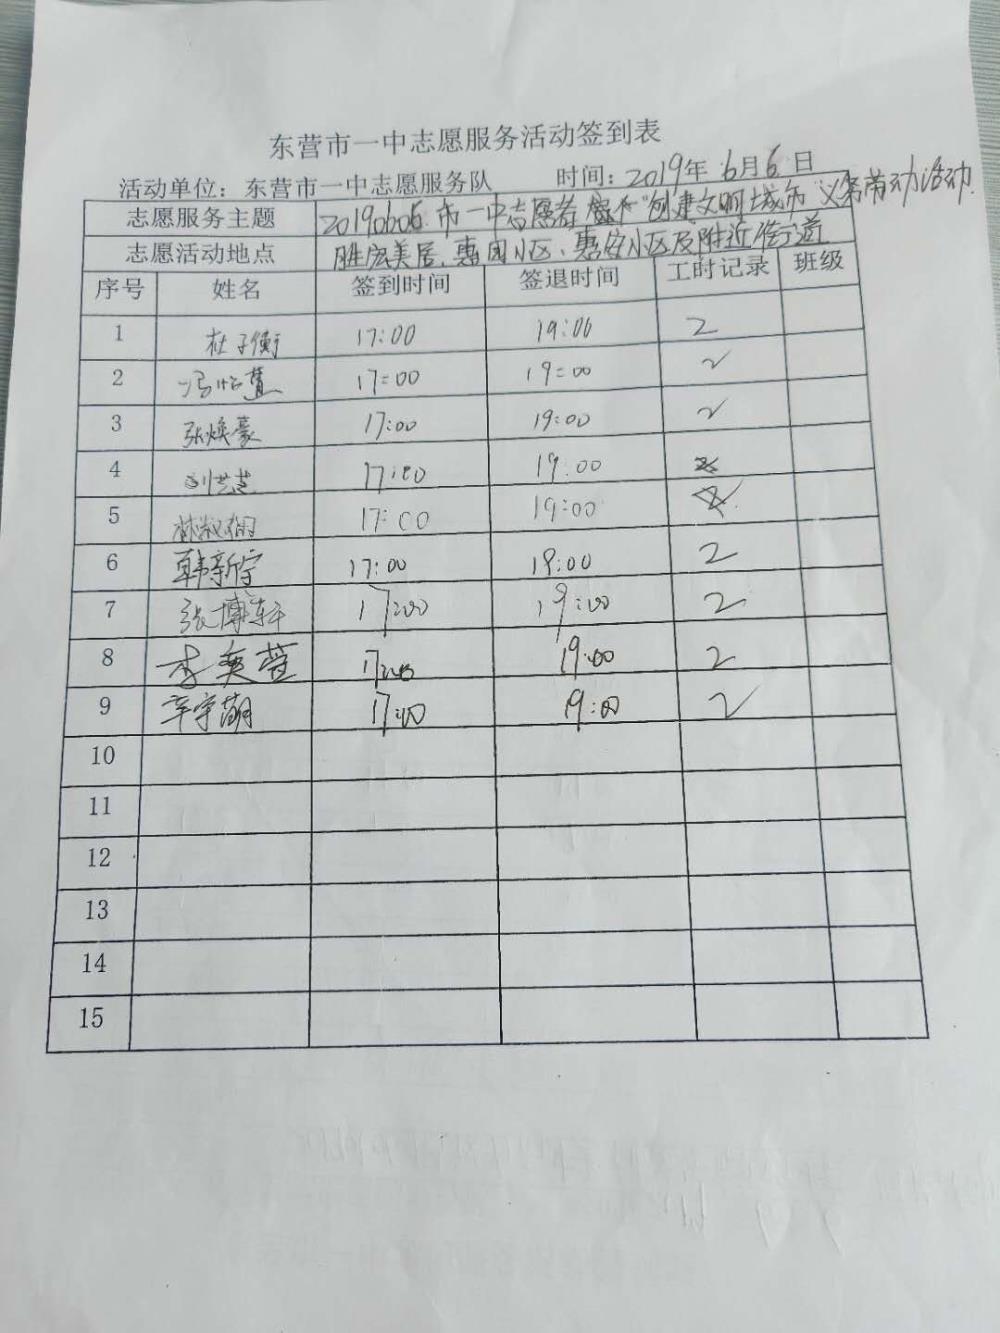 东营市一中志愿服务活动签到表
活动单位：东营市一中志愿服务队 时间：2019年6月6日
志愿服务主题 20190606市一中志愿者 "创建文明城市"义务劳动活动
志愿活动地点 胜宏美居、惠园小区、惠安小区及附近街道
序号 姓名 签到时间 签退时间 工时记录 班级
1 杜子衡 17:00 19:00 2
2 17:00 19:00 2
3 张焕豪 17:00 19:00 2
4 刘芸芸 17:00 19:00
5 17:00 19:00
6 韩新宇 17:00 19:00 2
7 张博轩 17:00 19:00 2
8 李奕萱 17:00 19:00 2
9 17:00 19:00 2
10
11
12
13
14
15